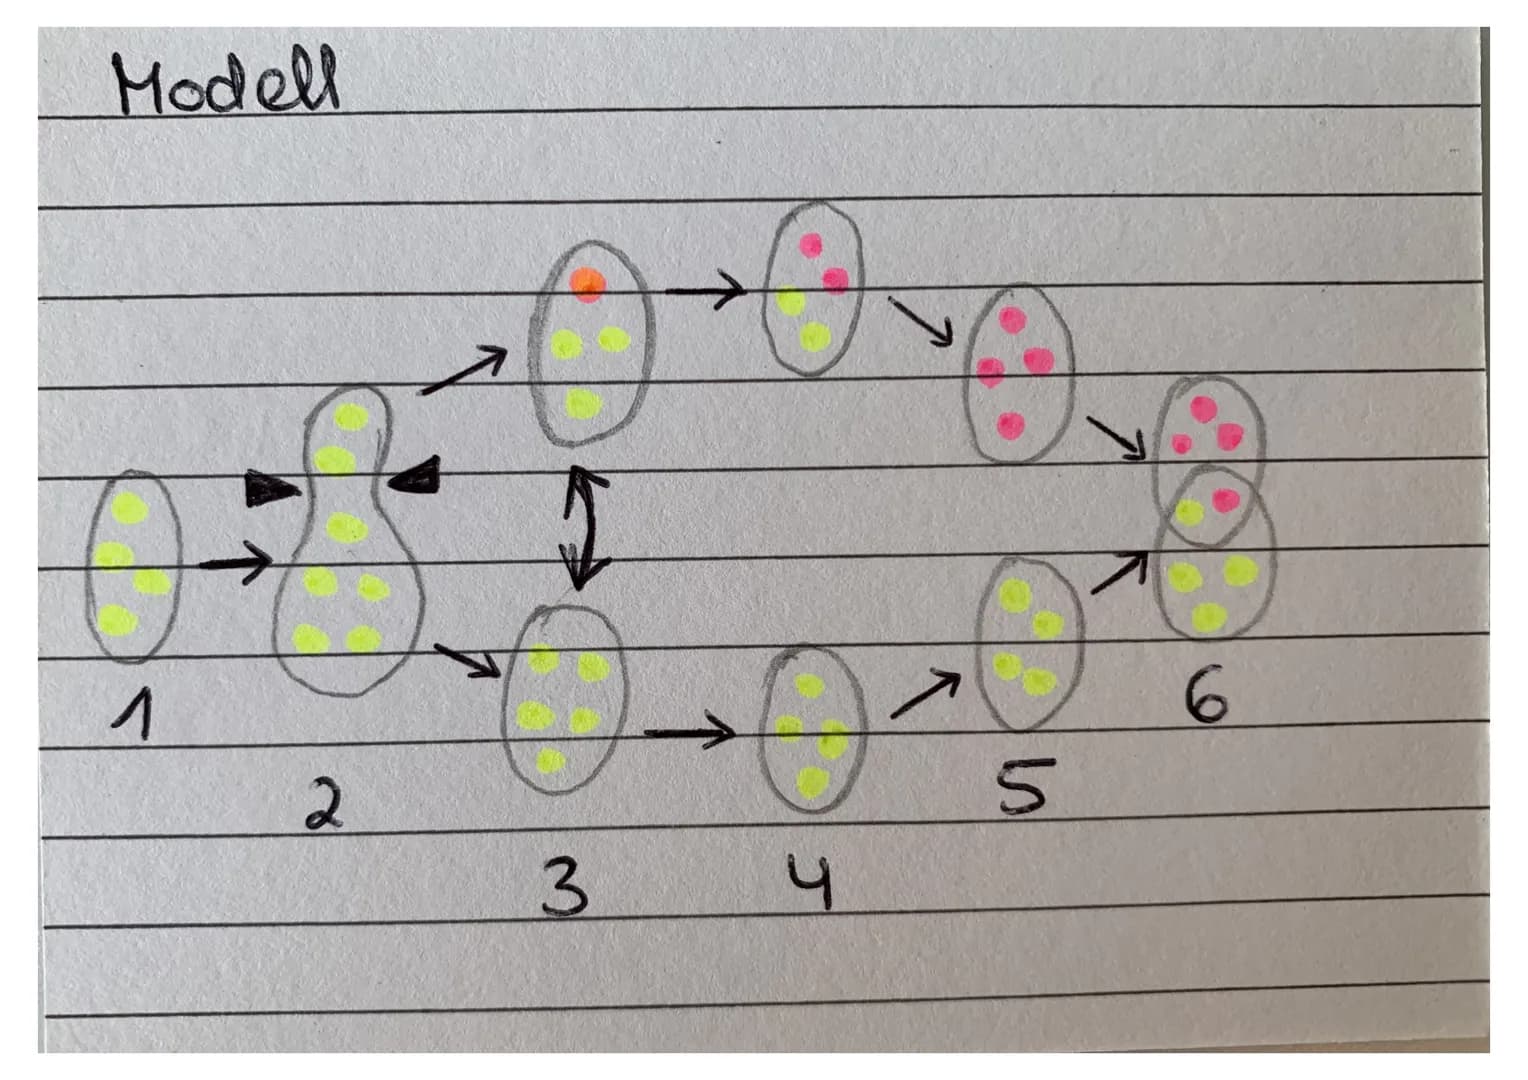 Modell
1
2
3
4
5
6